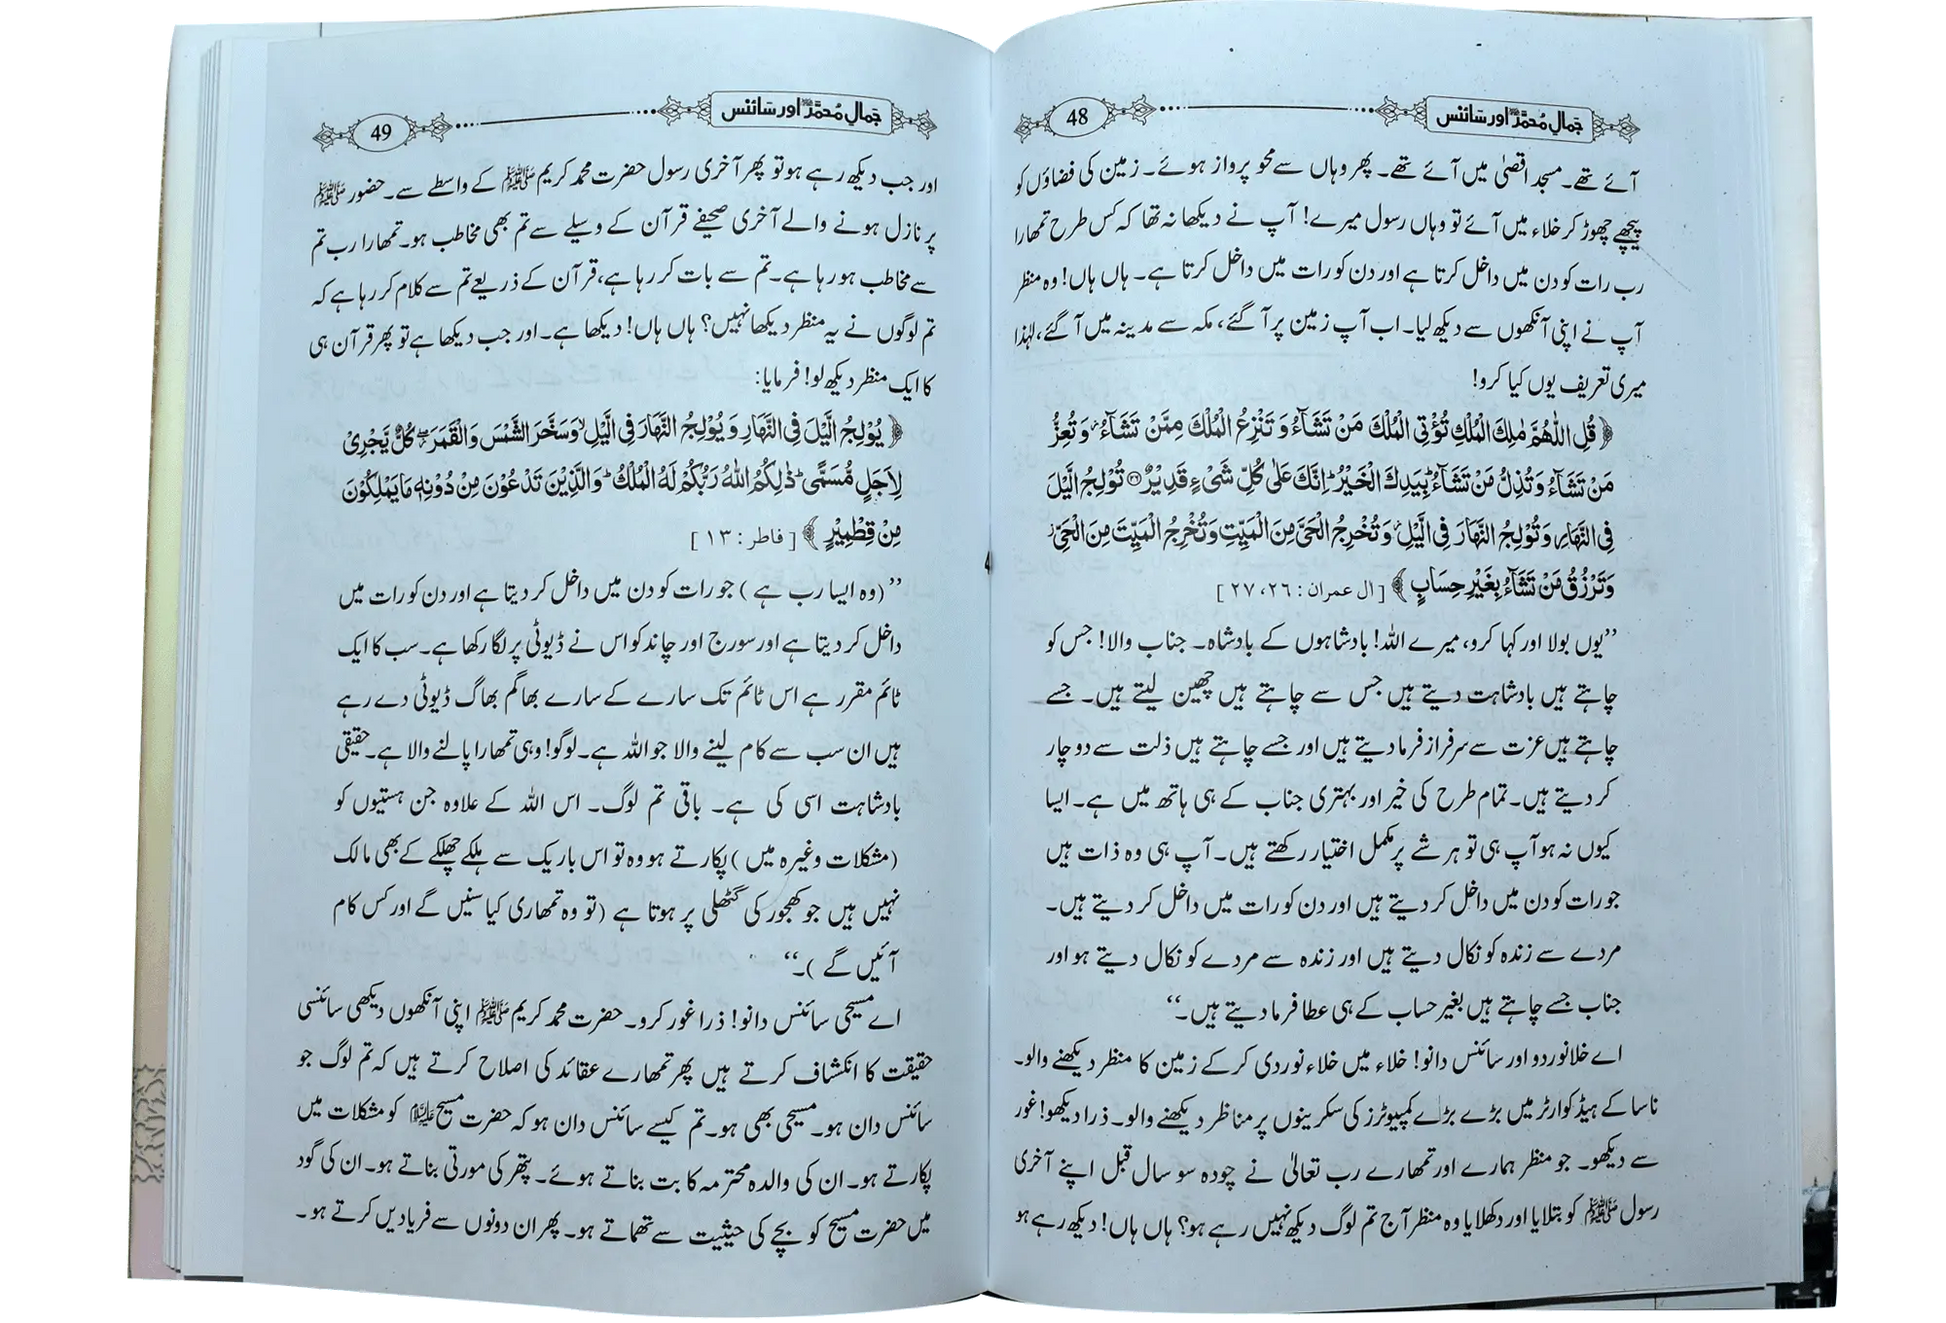 جمالِ محمدﷺ اور سائنس
48
آئے تھے۔ مسجد اقصیٰ میں آئے تھے۔ پھر وہاں سے محو پرواز ہوئے۔ زمین کی فضاؤں کو
پیچھے چھوڑ کر خلاء میں آئے تو وہاں رسول میرے! آپ نے دیکھا نہ تھا کہ کس طرح تمھارا
رب رات کو دن میں داخل کرتا ہے اور دن کو رات میں داخل کرتا ہے۔ ہاں ہاں! وہ منظر
آپ نے اپنی آنکھوں سے دیکھ لیا۔ اب آپ زمین پر آ گئے، مکہ سے مدینہ میں آ گئے، لہٰذا
میری تعریف یوں کیا کرو!
﴿ قُلِ اللّٰهُمَّ مٰلِكَ الْمُلْكِ تُؤْتِي الْمُلْكَ مَنْ تَشَآءُ وَ تَنْزِعُ الْمُلْكَ مِمَّنْ تَشَآءُ ۫ وَ تُعِزُّ
مَنْ تَشَآءُ وَ تُذِلُّ مَنْ تَشَآءُ ؕ بِيَدِكَ الْخَيْرُ ؕ اِنَّكَ عَلٰى كُلِّ شَيْءٍ قَدِيْرٌ ۝۲۶ تُوْلِجُ الَّيْلَ
فِي النَّهَارِ وَ تُوْلِجُ النَّهَارَ فِي الَّيْلِ ۫ وَ تُخْرِجُ الْحَيَّ مِنَ الْمَيِّتِ وَ تُخْرِجُ الْمَيِّتَ مِنَ الْحَيِّ ۫
وَ تَرْزُقُ مَنْ تَشَآءُ بِغَيْرِ حِسَابٍ ﴾ [ ال عمران : ۲۶، ۲۷ ]
’’یوں بولا اور کہا کرو، میرے اللہ! بادشاہوں کے بادشاہ۔ جناب والا! جس کو
چاہتے ہیں بادشاہت دیتے ہیں جس سے چاہتے ہیں چھین لیتے ہیں۔ جسے
چاہتے ہیں عزت سے سرفراز فرما دیتے ہیں اور جسے چاہتے ہیں ذلت سے دو چار
کر دیتے ہیں۔ تمام طرح کی خیر اور بہتری جناب کے ہی ہاتھ میں ہے۔ ایسا
کیوں نہ ہو آپ ہی تو ہر شے پر مکمل اختیار رکھتے ہیں۔ آپ ہی وہ ذات ہیں
جو رات کو دن میں داخل کر دیتے ہیں اور دن کو رات میں داخل کر دیتے ہیں۔
مردے سے زندہ کو نکال دیتے ہیں اور زندہ سے مردے کو نکال دیتے ہو اور
جناب جسے چاہتے ہیں بغیر حساب کے ہی عطا فرما دیتے ہیں۔‘‘
اے خلا نوردو اور سائنس دانو! خلاء میں خلاء نوردی کر کے زمین کا منظر دیکھنے والو۔
ناسا کے ہیڈ کوارٹر میں بڑے بڑے کمپیوٹرز کی سکرینوں پر مناظر دیکھنے والو۔ ذرا دیکھو! غور
سے دیکھو۔ جو منظر ہمارے اور تمھارے رب تعالیٰ نے چودہ سو سال قبل اپنے آخری
رسول ﷺ کو بتلایا اور دکھلایا وہ منظر آج تم لوگ دیکھ نہیں رہے ہو؟ ہاں ہاں! دیکھ رہے ہو
جمالِ محمدﷺ اور سائنس
49
اور جب دیکھ رہے ہو تو پھر آخری رسول حضرت محمد کریم ﷺ کے واسطے سے۔ حضور ﷺ
پر نازل ہونے والے آخری صحیفے قرآن کے وسیلے سے تم بھی مخاطب ہو۔ تمھارا رب تم
سے مخاطب ہو رہا ہے۔ تم سے بات کر رہا ہے، قرآن کے ذریعے تم سے کلام کر رہا ہے کہ
تم لوگوں نے یہ منظر دیکھا نہیں؟ ہاں ہاں! دیکھا ہے۔ اور جب دیکھا ہے تو پھر قرآن ہی
کا ایک منظر دیکھ لو! فرمایا:
﴿ يُوْلِجُ الَّيْلَ فِي النَّهَارِ وَ يُوْلِجُ النَّهَارَ فِي الَّيْلِ ۙ وَ سَخَّرَ الشَّمْسَ وَ الْقَمَرَ ۖؗ كُلٌّ يَّجْرِيْ
لِاَجَلٍ مُّسَمًّى ؕ ذٰلِكُمُ اللّٰهُ رَبُّكُمْ لَهُ الْمُلْكُ ؕ وَ الَّذِيْنَ تَدْعُوْنَ مِنْ دُوْنِهٖ مَا يَمْلِكُوْنَ
مِنْ قِطْمِيْرٍ ﴾ [ فاطر : ۱۳ ]
’’(وہ ایسا رب ہے ) جو رات کو دن میں داخل کر دیتا ہے اور دن کو رات میں
داخل کر دیتا ہے اور سورج اور چاند کو اس نے ڈیوٹی پر لگا رکھا ہے۔ سب کا ایک
ٹائم مقرر ہے اس ٹائم تک سارے کے سارے بھاگم بھاگ ڈیوٹی دے رہے
ہیں ان سب سے کام لینے والا جو اللہ ہے۔ لوگو! وہی تمھارا پالنے والا ہے۔ حقیقی
بادشاہت اسی کی ہے۔ باقی تم لوگ۔ اس اللہ کے علاوہ جن ہستیوں کو
(مشکلات وغیرہ میں ) پکارتے ہو وہ تو اس باریک سے ہلکے چھلکے کے بھی مالک
نہیں ہیں جو کھجور کی گٹھلی پر ہوتا ہے (تو وہ تمھاری کیا سنیں گے اور کس کام
آئیں گے )۔‘‘
اے مسیحی سائنس دانو! ذرا غور کرو۔ حضرت محمد کریم ﷺ اپنی آنکھوں دیکھی سائنسی
حقیقت کا انکشاف کرتے ہیں پھر تمھارے عقائد کی اصلاح کرتے ہیں کہ تم لوگ جو
سائنس دان ہو۔ مسیحی بھی ہو۔ تم کیسے سائنس دان ہو کہ حضرت مسیح علیہ السلام کو مشکلات میں
پکارتے ہو۔ ان کی والدہ محترمہ کا بت بناتے ہوئے۔ پتھر کی مورتی بناتے ہو۔ ان کی گود
میں حضرت مسیح کو بچے کی حیثیت سے تھماتے ہو۔ پھر ان دونوں سے فریادیں کرتے ہو۔